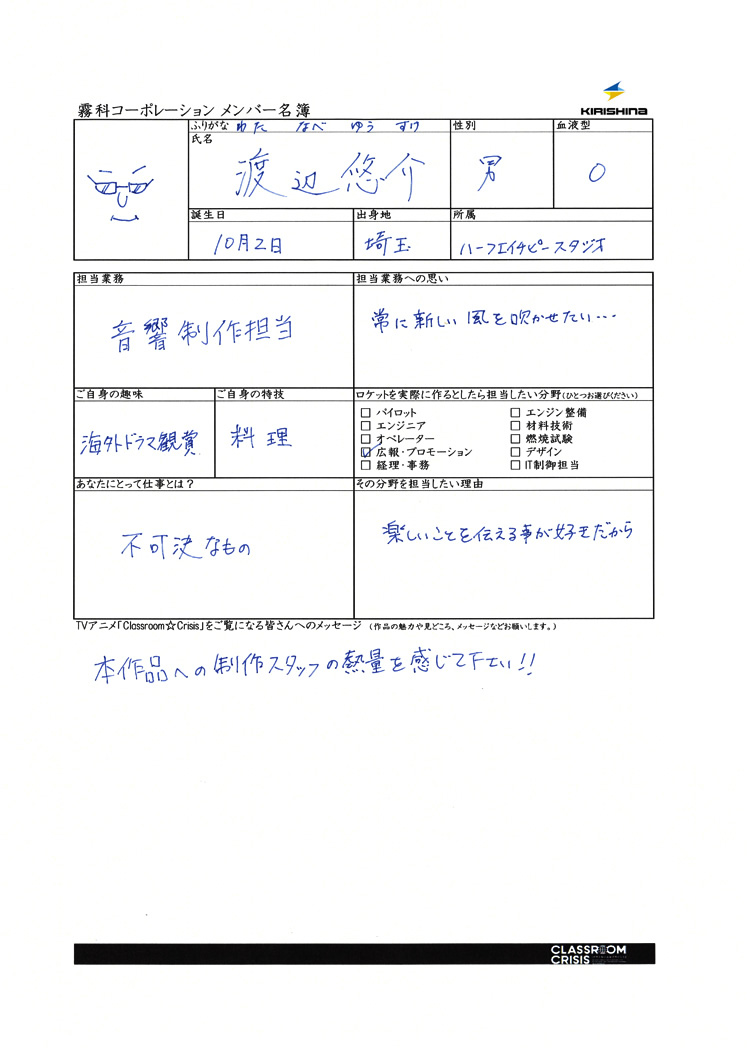 KIRISHINA
霧科コーポレーション メンバー名簿
ふりがな わた なべ ゆう すけ
性別
血液型
氏名
渡辺悠介
男
O
誕生日
出身地
所属
10月2日
埼玉
ハーフエイチピースタジオ
担当業務
担当業務への思い
音響制作担当
常に新しい風を吹かせたい…
ご自身の趣味
ご自身の特技
ロケットを実際に作るとしたら担当したい分野(ひとつお選びください)
海外ドラマ観賞
料理
□ パイロット
□ エンジン整備
□ エンジニア
□ 材料技術
□ オペレーター
□ 燃焼試験
☑ 広報・プロモーション
□ デザイン
□ 経理・事務
□ IT制御担当
あなたにとって仕事とは?
その分野を担当したい理由
不可決なもの
楽しいことを伝える事が好きだから
TVアニメ「Classroom☆Crisis」をご覧になる皆さんへのメッセージ (作品の魅力や見どころ、メッセージなどお願いします。)
本作品への制作スタッフの熱量を感じて下さい!!
CLASSROOM
CRISIS